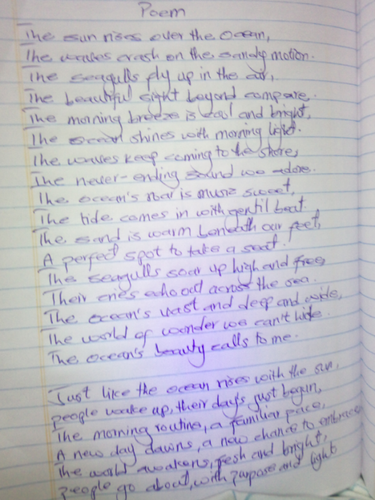 Poem
The sun rises over the ocean,
The waves crash on the sandy motion.
The seagulls fly up in the air,
The beautiful sight beyond compare.
The morning breeze is cool and bright,
The ocean shines with morning light.
The waves keep coming to the shore,
The never-ending sound we adore.
The ocean's roar is music sweet,
The tide comes in with gentil beat.
The sand is warm beneath our feet,
A perfect spot to take a seat.
The seagulls soar up high and free,
Their cries echo out across the sea.
The ocean's vast and deep and wide,
The world of wonder we can't hide.
The ocean's beauty calls to me.
Just like the ocean rises with the sun,
people wake up, their days just begun,
The morning routine, a familiar pace,
A new day dawns, a new chance to embrace
The world awakens, fresh and bright,
People go about, with purpose and light